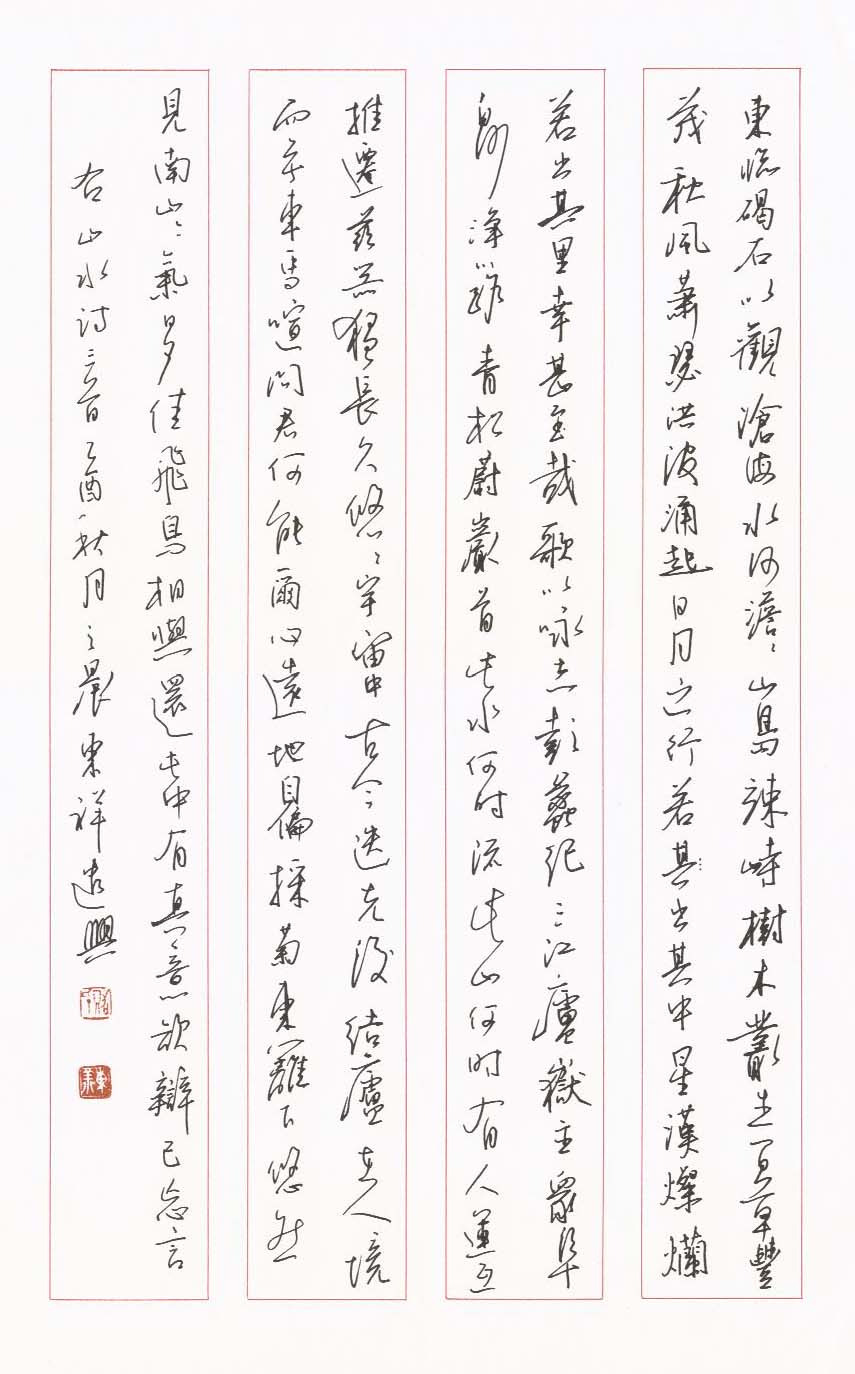 東臨碣石以觀滄海水何澹〻山島竦峙樹木叢生百草豐
茂秋風蕭瑟洪波涌起日月之行若其出其中星漢燦爛
若出其里幸甚至哉歌以咏志彭蠡纪三江廬嶽主衆阜
白沙淨川路青松蔚巖首此水何时流此山何时有人運互
推遷兹器獨長久悠〻宇宙中古今迭先後结廬在人境
而無車馬喧问君何能爾心遠地自偏採菊東籬下悠然
見南山〻氣日夕佳飛鳥相與還此中有真意欲辯已忘言
右山水诗三首乙酉秋月之晨東祥遣興